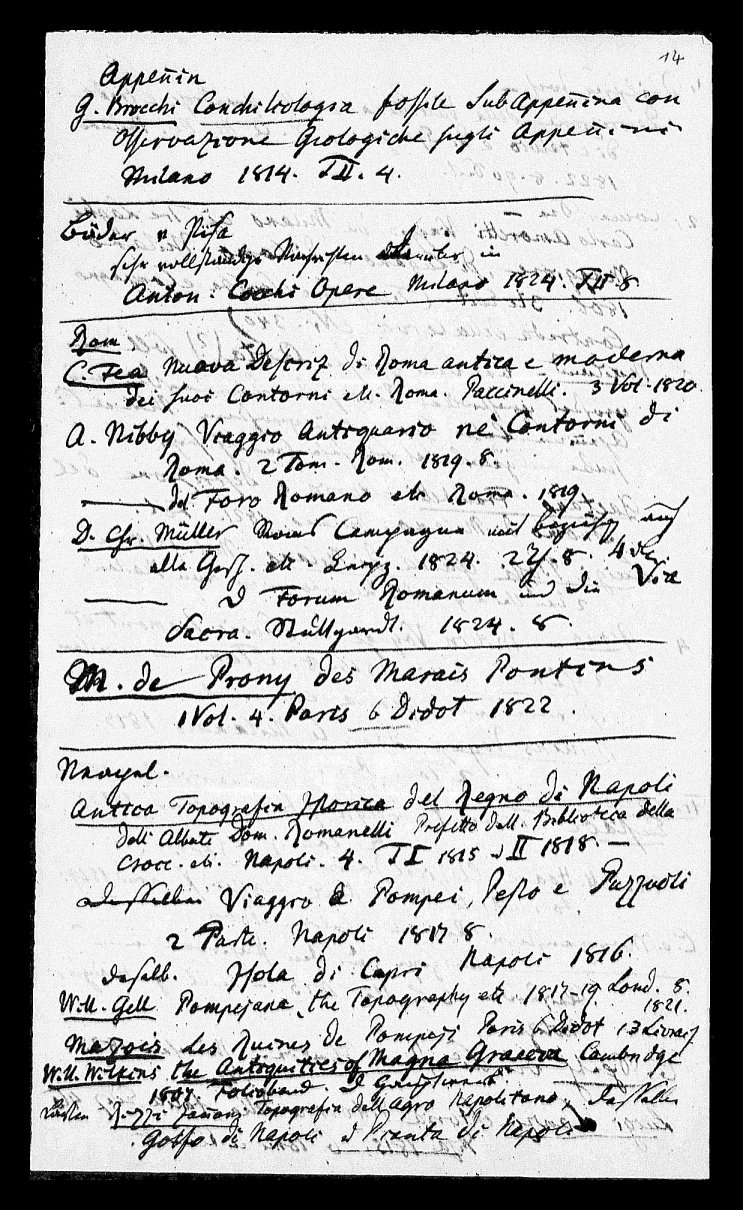 14
Appenin
G. Brocchi Conchiliologia fossile SubAppenina con
Osservazione Geologiche sugli Appenini
Milano 1814. TII. 4.
Bäder v Pisa
sehr vollständige Nachrichten darüber in
Anton: Cocchi Opere Milano 1824. TII 8
Rom
C. Fea Nuova Descriz di Roma antica e moderna
dei suoi Contorni etc. Roma. Paccinelli. 3 Vol. 1820.
A. Nibby Viaggio Antiquario ne Contorni di
Roma. 2 Tom. Rom. 1819. 8.
del Foro Romano etc Roma. 1819
D. Chr. Müller Roms Campagna mit auf
alte Gesch. etc Leipz. 1824. 2 8.
D Forum Romanum und die Via
Sacra. Stuttgardt. 1824. 8.
M. de Prony des Marais Pontins
1 Vol. 4. Paris b Didot 1822.
Neapel.
Antica Topografia Istorica del Regno di Napoli
dell Abate Dom. Romanelli Prefetto dell. Biblioteca della
Croce. etc. Napoli. 4. TI 1815 d II 1818. —
desselben Viaggio a Pompei, Pesto e Puzzuoli
2 Parte. Napoli 1817 8.
desselb. Isola di Capri Napoli 1816.
W. Gell Pompejana, the Topography etc 1817-19 Lond. 8.
1821.
Mazois Les Ruines de Pompeji Paris b Didot 13 Livrais
W. Wilkins the Antiquities of Magna Graecia Cambridge
1807 Folioband.
Rizzi Zannoni Topografia dell agro Napolitano, desselben
Golfo di Napoli d Pianta di Napoli